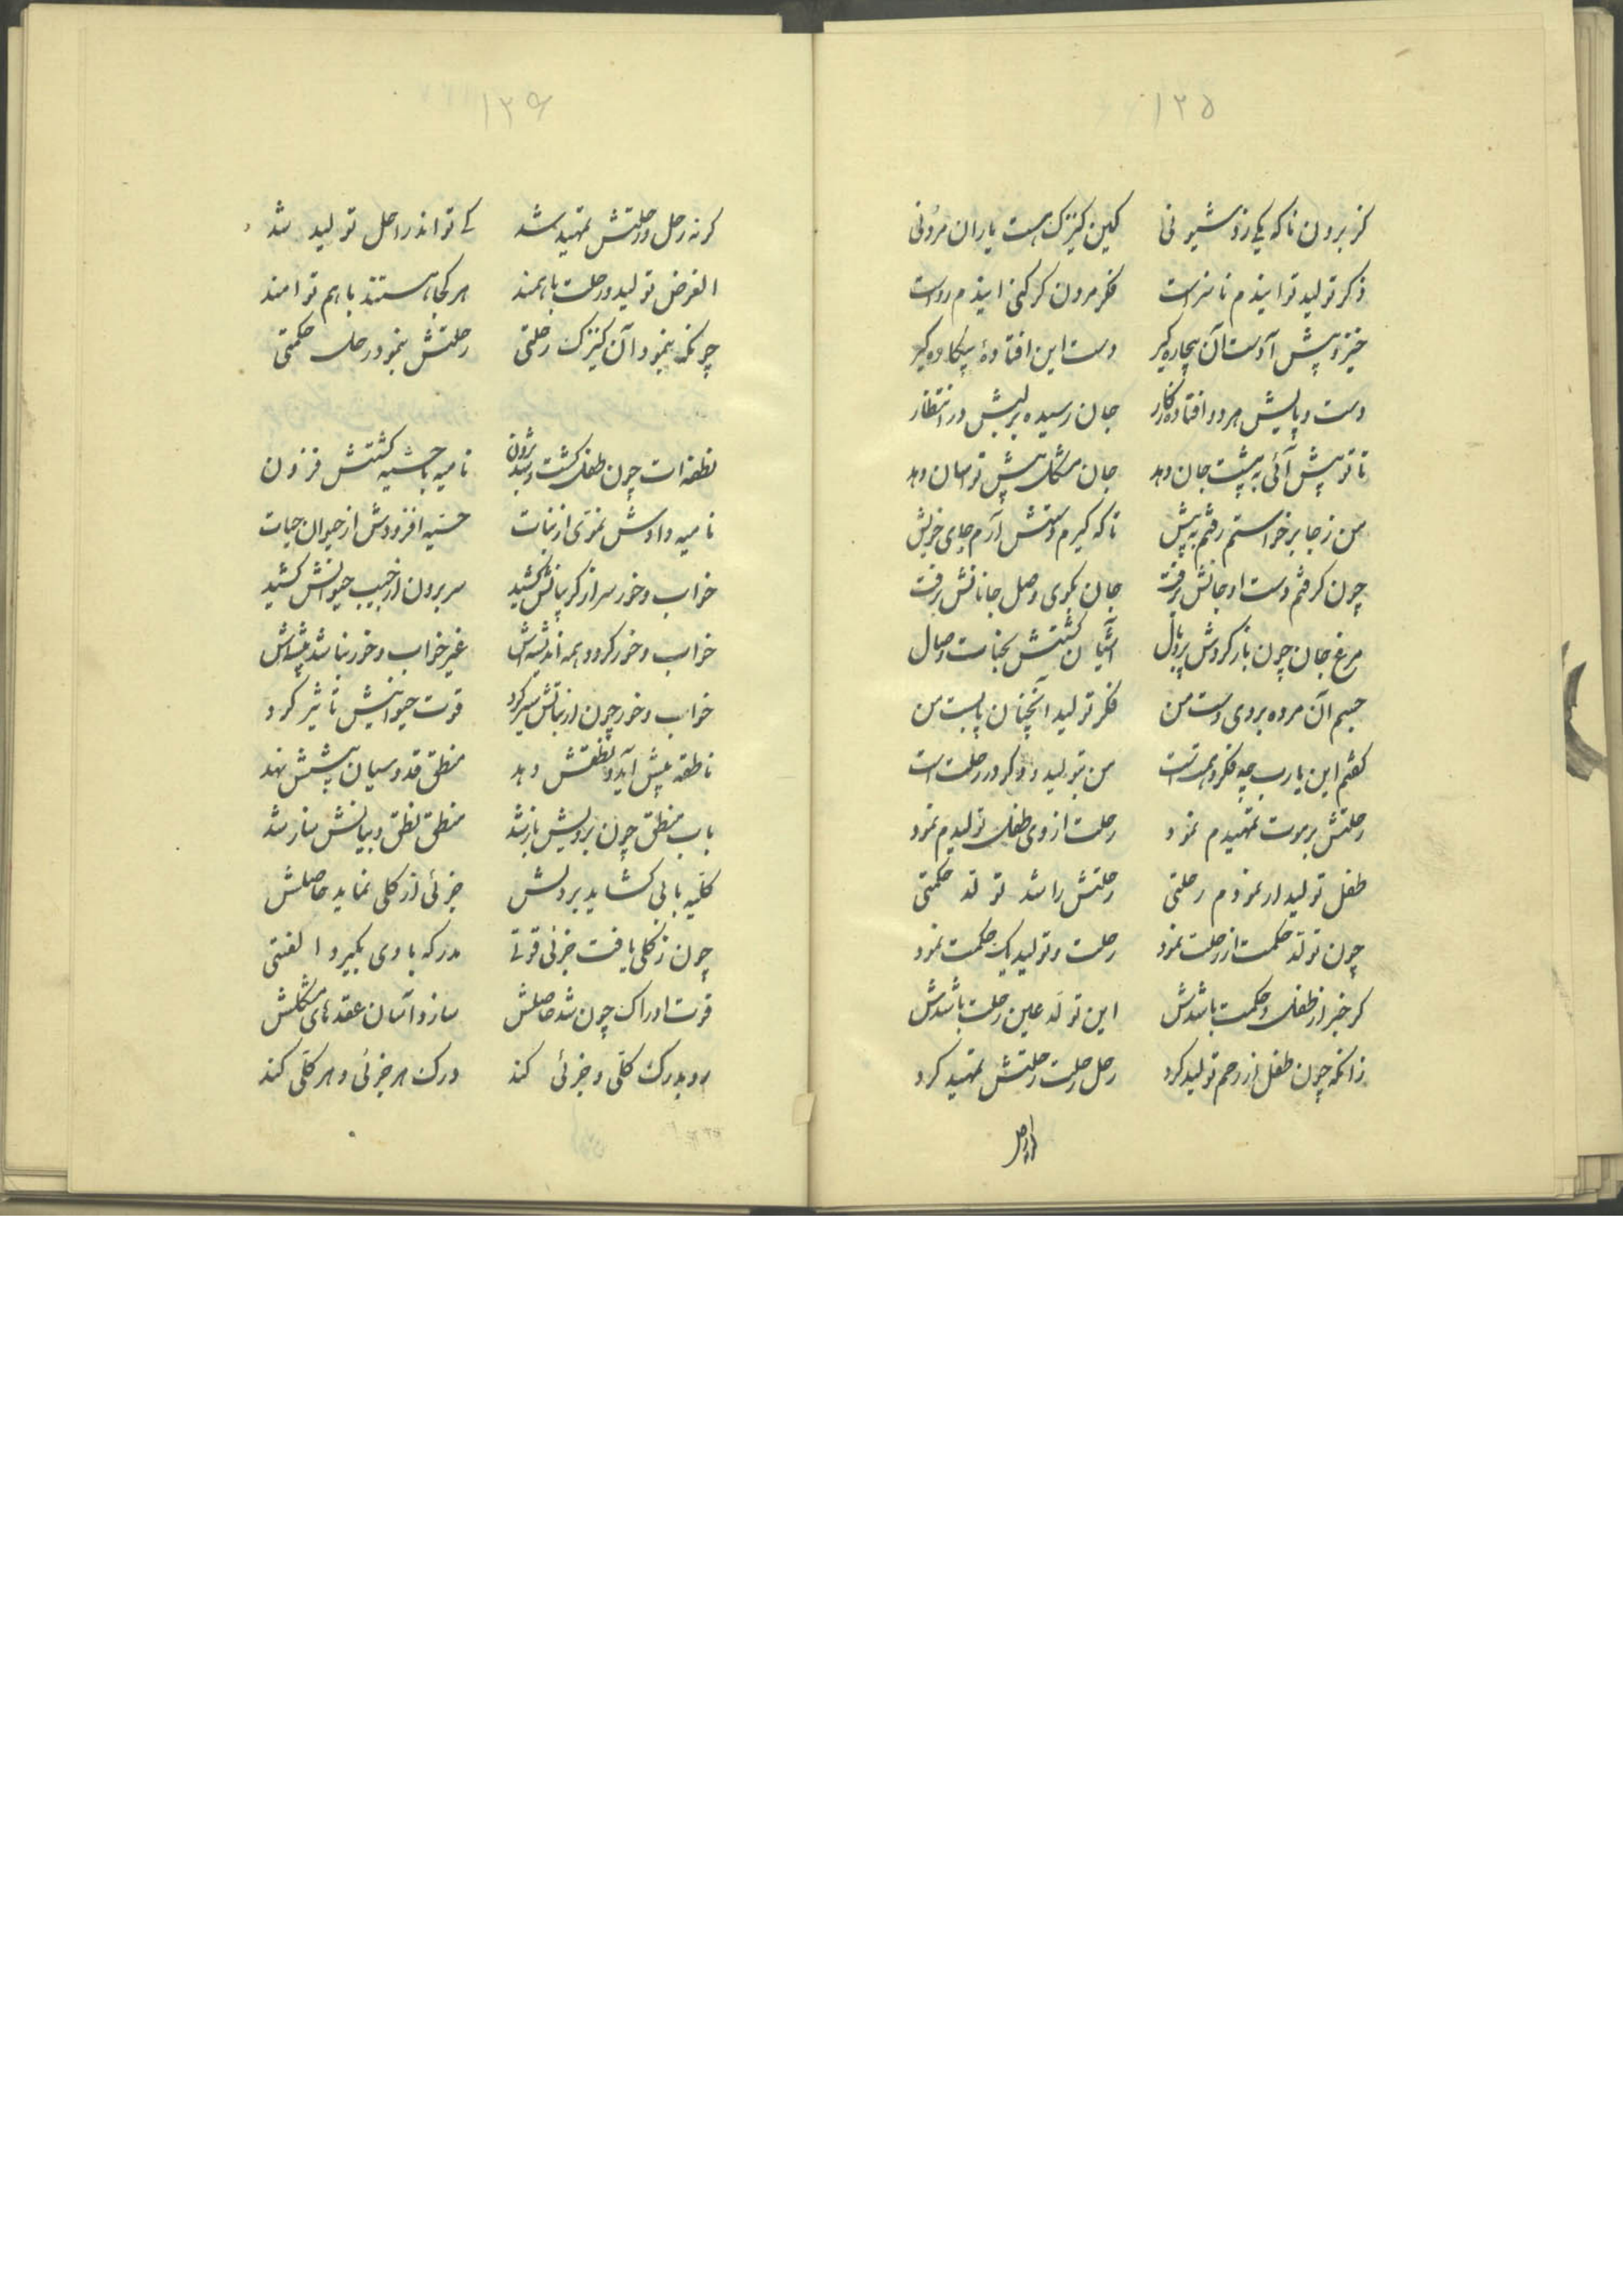 ۱۲۵
کز برون ناکه یکی زد شیونی کین کنیزک هست یاران مردنی
ذکر تولید تو ایندم ناسزاست فکر مردن کر کنی ایندم رواست
خیز و پیش آ دست آن بیچاره کیر دست این افتادهٔ بیکاره کیر
دست و پایش هر دو افتاده ز کار جان رسیده بر لبش در انتظار
تا تو پیش آئی به پیشت جان دهد جان مشکل پیش تو آسان دهد
من ز جا برخواستم رفتم به پیش تا که کیرم دستش آرم جای خویش
چون کرفتم دست او جانش برفت جان بکوی وصل جانانش برفت
مرغ جان چون باز کردش پر و بال آشیان کشتش بجنات وصال
جسم آن مرده بروی دست من فکر تولید آنچنان پابست من
کفتم این یارب چه فکر و همت است من بتولید و او در رحلت است
رحلتش بر موت تمهیدم نمود رحلت از وی طفل تولیدم نمود
طفل تولید ار نمودم رحلتی رحلتش را شد تولد حکمتی
چون تولد حکمت از رحلت نمود رحلت و تولید یک حکمت نمود
کر خبر از طفل و حکمت باشدش این تولد عین رحلت باشدش
زانکه چون طفل از رحم تولید کرد رحل رحلت رحلتش تمهید کرد
۱۲۶
کر نه رحل و رحلتش تمهید شد کی تواند راحل تولید شد
الغرض تولید و رحلت با همند هر کجا هستند با هم توامند
چونکه بنمود آن کنیزک رحلتی رحلتش بنمود در حل حکمتی
نطفه ات چون طفل کشت و شد برون نامیه با حسیه کشتش فزون
نامیه دادش نموی از نبات حسیه افزودش از حیوان حیات
خواب و خور سر از کریبانش کشید سر برون از جیب حیوانش کشید
خواب و خور کردد همه اندیشه اش غیر خواب و خور نباشد پیشه اش
خواب و خور چون از نباتش سیر کرد قوت حیوانیش تاثیر کرد
ناطقه پیش آید و نطقش دهد منطق قدوسیان پیشش نهد
باب منطق چون برویش باز شد منطق نطق و بیانش ساز شد
کلیه بابی کشاید بر دلش جزئی از کلی نماید حاصلش
چون ز کلی یافت جزئی قوتی مدرکه با وی بکیرد الفتی
قوت ادراک چون شد حاصلش سازد آسان عقدهای مشکلش
رو بدرک کلی و جزئی کند درک هر جزئی و هر کلی کند